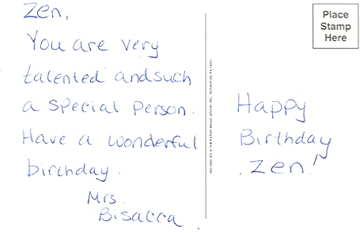 Zen,
You are very
talented and such
a special person.
Have a wonderful
birthday.
Mrs.
Bisacca
Place
Stamp
Here
Happy
Birthday
Zen!